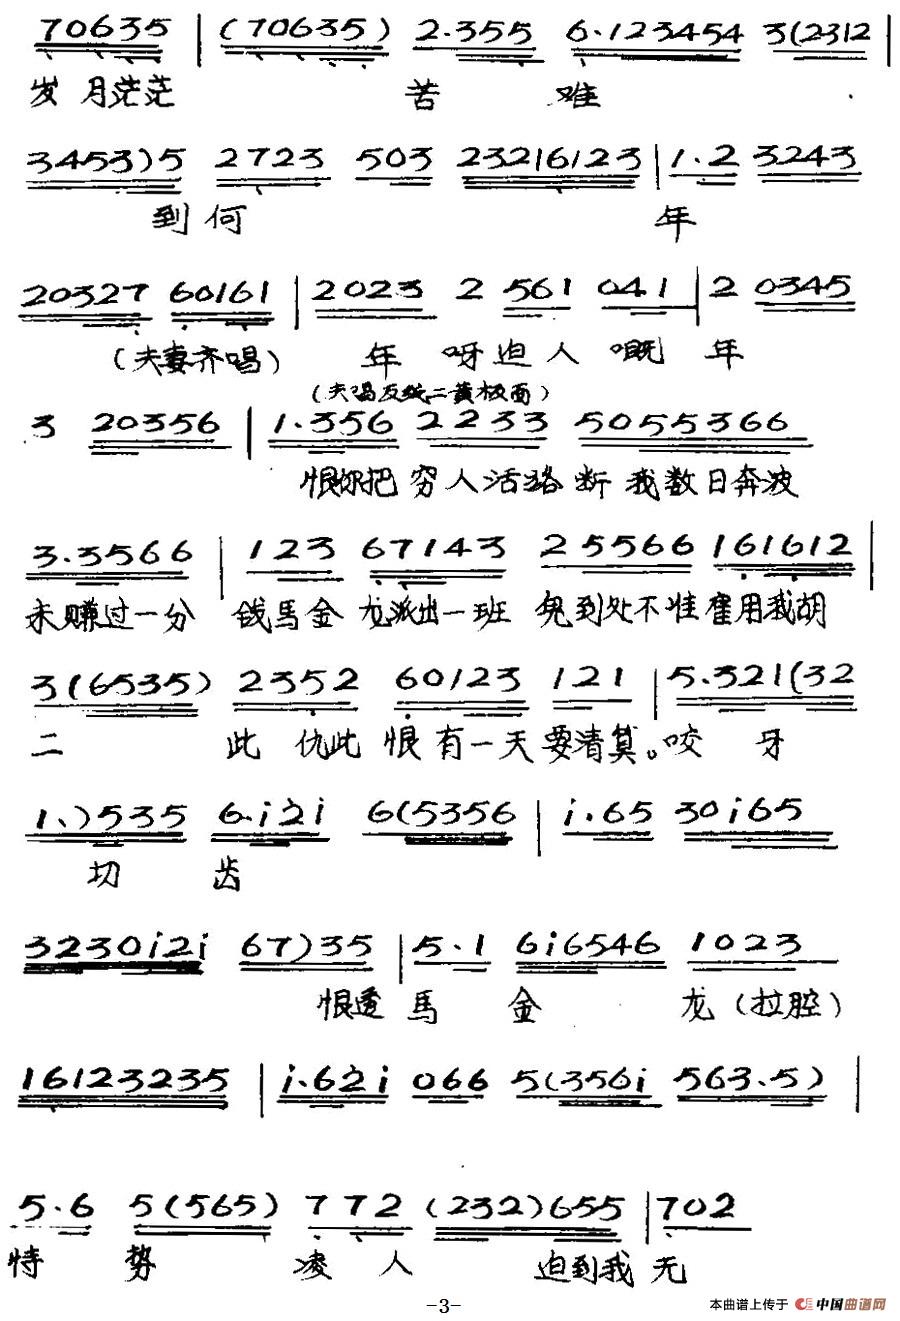 70635 | (70635) 2.355 6.123454 3(2312 |
岁 月茫茫 苦 难
3453)5 2723 503 23216123 | 1.2 3243
到 何 年
20327 60161 | 2023 2 561 041 | 2 0345
(夫妻齐唱) 年 呀 迫 人 嘅 年
(夫唱反线二黄板面)
3 20356 | 1.356 2233 5055366
恨你把 穷 人 活路 断 我 数日奔波
3.3566 | 123 67143 25566 161612 |
未赚过一分 钱馬金 龙派出一班 鬼到处不准雇用我胡
3(6535) 2352 60123 121 | 5.321(32
二 此 仇此 恨 有 一 天 要清算。咬 牙
1.)535 6.i2i 6(5356 | i.65 30i65
切 齿
3230i2i 67)35 | 5.1 6i6546 1023
恨透 馬 金 龙 (拉腔)
16123235 | i.62i 066 5(356i 563.5) |
5.6 5(565) 772 (232)655 | 702
恃 势 凌 人 迫到我 无
-3-
本曲谱上传于 中国曲谱网